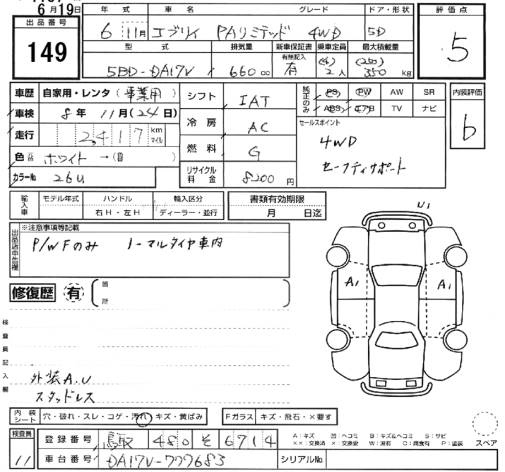 6月19日
出品番号
149
年式 車名 グレード ドア・形状
6 11月 エブリイ PAリミテッド 4WD 5D
型式 排気量 新車保証書 乗車定員 最大積載量
有無記入 (4) (250)
5BD-DA17V 660 cc 有 2人 350 kg
評価点
5
車歴 自家用・レンタ(事業用)
車検 8年 11月(24日)
走行 2,417 km マイル
色 ホワイト→(自 )
カラーNo 26U
シフト IAT
冷房 AC
燃料 G
リサイクル料金 8200円
純正のみ PS PW AW SR
TV ナビ
セールスポイント
4WD
セーフティサポート
内装評価
b
輸入車 モデル年式 ハンドル 輸入区分
右H・左H ディーラー・並行
書類有効期限
月 日迄
※注意事項等記載
P/WFのみ ノーマルタイヤ車内
修復歴 有
箇所
検査員記入欄
外装A.U
スタッドレス
U1
A1 A1
内装シート 穴・破れ・スレ・コゲ・汚れ・キズ・黄ばみ
Fガラス キズ・飛石・×要す
検査員
11
登録番号 鳥取 480 そ 6714
車台番号 DA17V-777683
シリアルNo
A:キズ U:ヘコミ B:キズ&ヘコミ S:サビ
××:交換済 ×:交換要 W:波有 C:腐食有 P:塗装
スペア